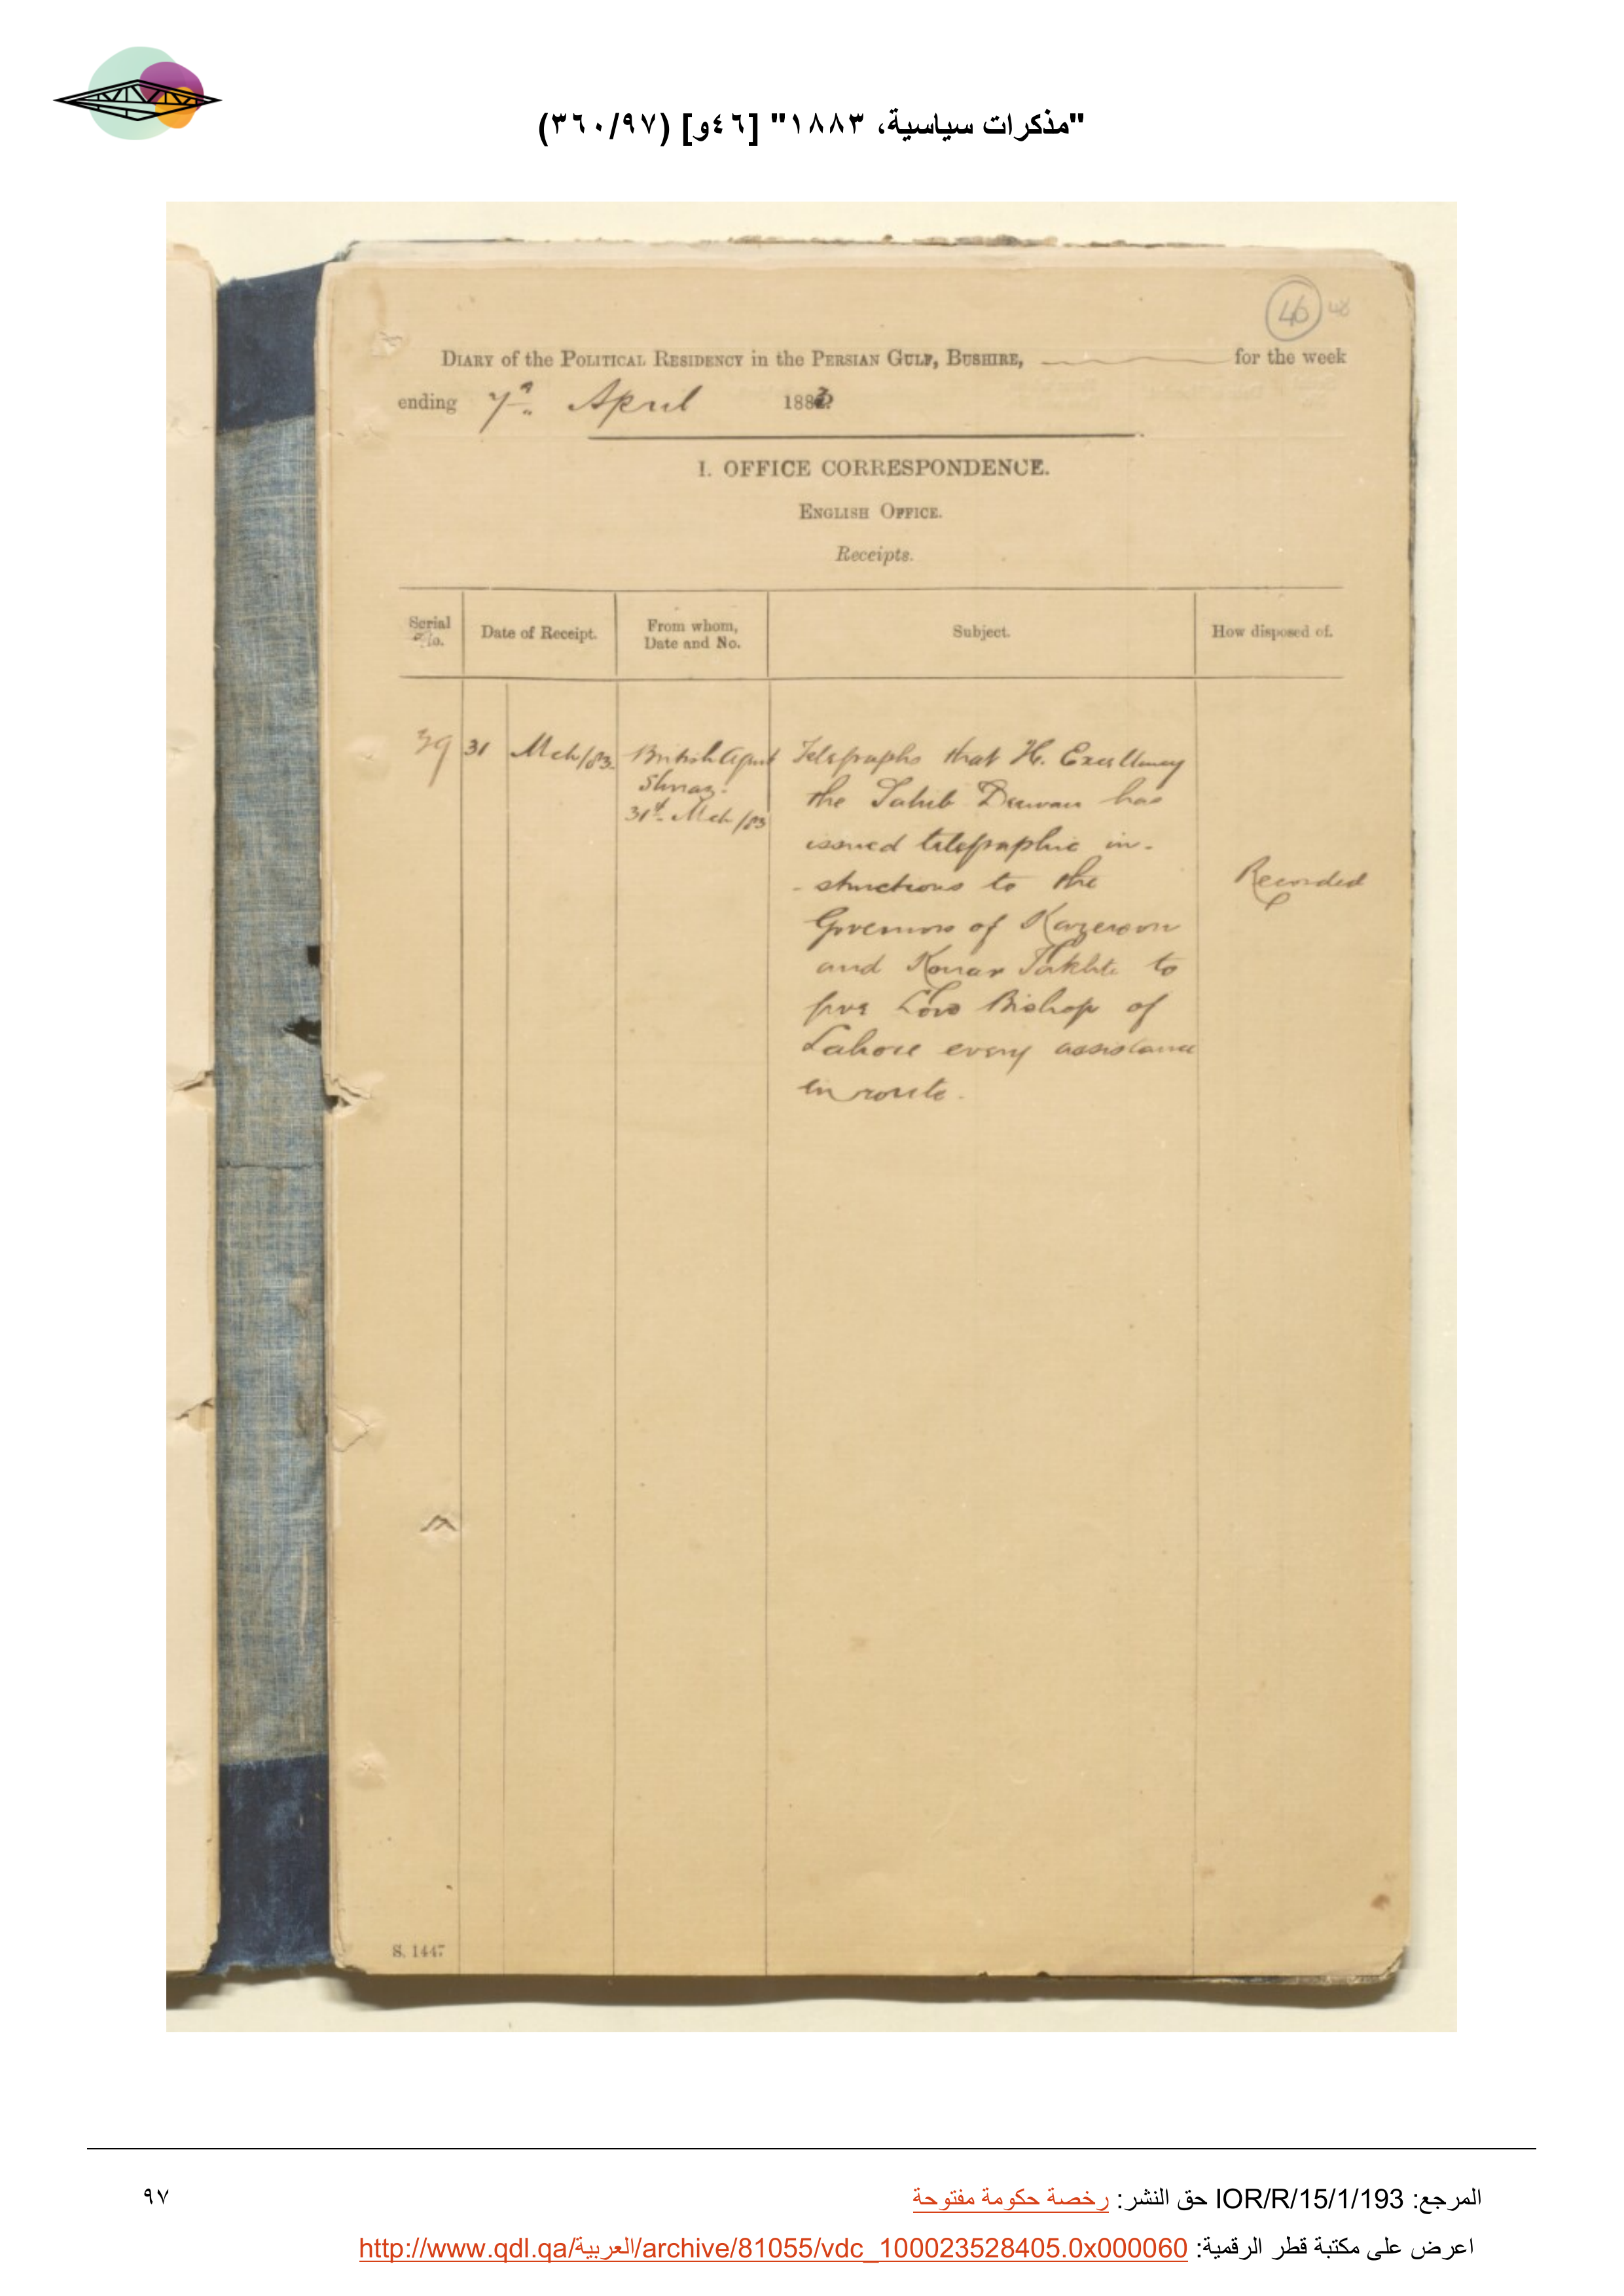 "مذكرات سياسية، ١٨٨٣" [٤٦و] (٣٦٠/٩٧)
46 48
DIARY of the POLITICAL RESIDENCY in the PERSIAN GULF, BUSHIRE, for the week
ending 7th April 1883
I. OFFICE CORRESPONDENCE.
ENGLISH OFFICE.
Receipts.
Serial No.
Date of Receipt.
From whom, Date and No.
Subject.
How disposed of.
39
31 Mch/83.
British Agent
Shiraz.
31st Mch/83
Telegraphs that H. Excellency
the Sahib Deewan has
issued telegraphic in-
-structions to the
Governors of Kazeroon
and Konar Takhte to
give Lord Bishop of
Lahore every assistance
en route.
Recorded
S. 1447
المرجع: IOR/R/15/1/193 حق النشر: رخصة حكومة مفتوحة
٩٧
اعرض على مكتبة قطر الرقمية: http://www.qdl.qa/العربية/archive/81055/vdc_100023528405.0x000060